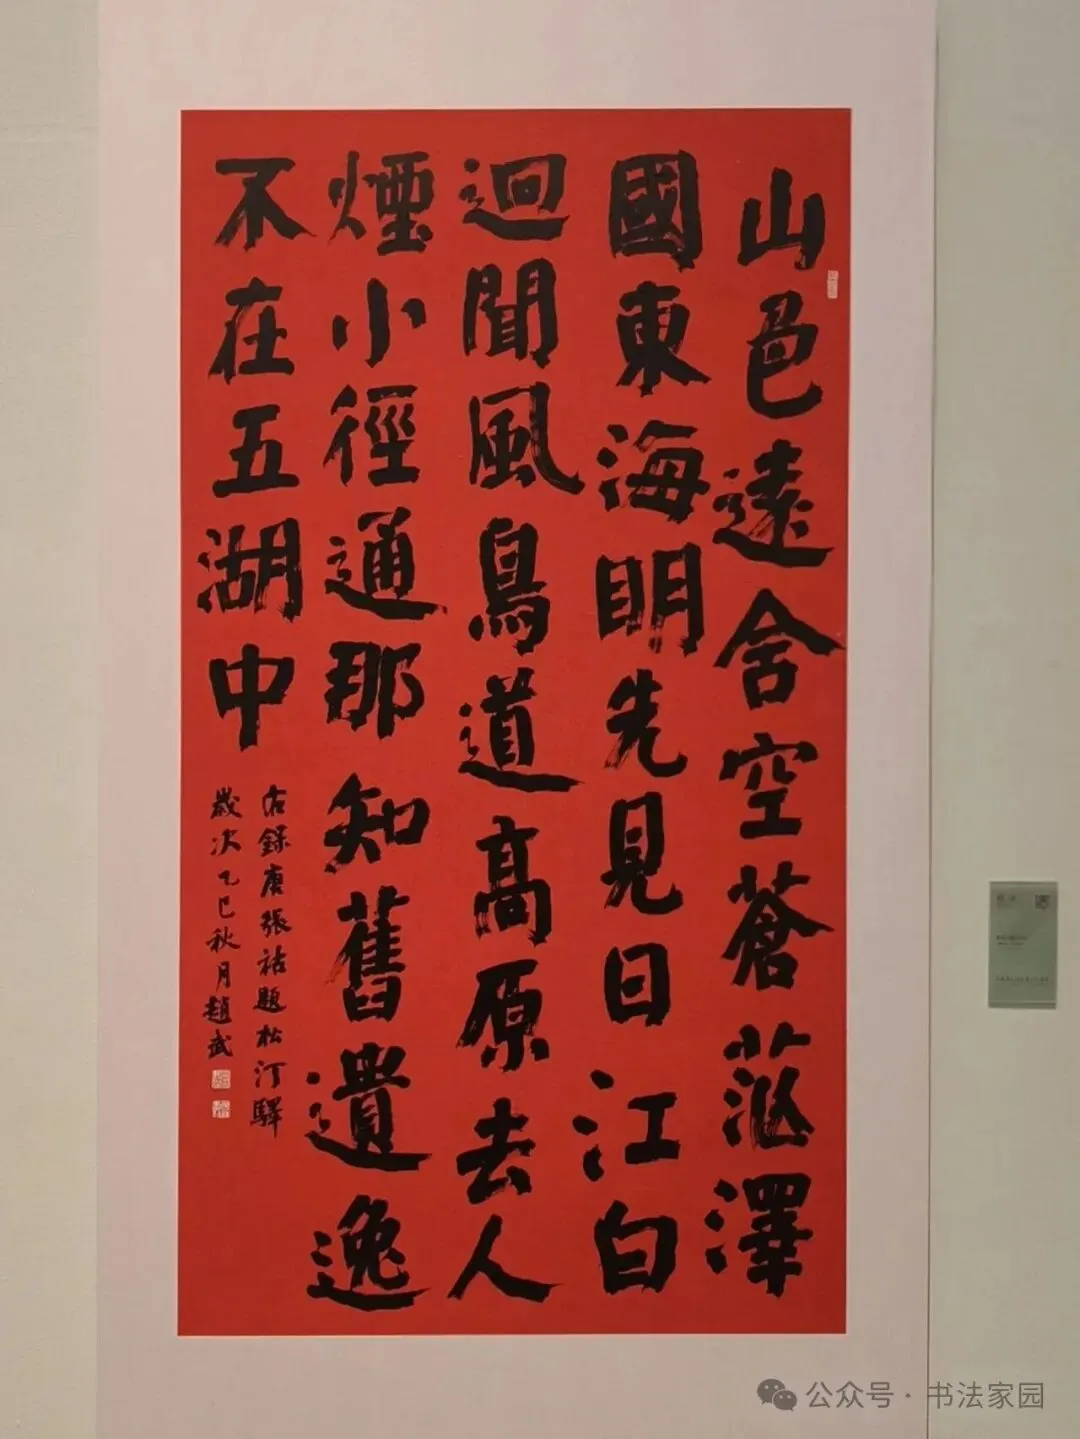 山色遠含空蒼茫澤
國東海明先見日江白
迴聞風鳥道高原去人
煙小徑通那知舊遺逸
不在五湖中
右錄唐張祜題松汀驛
歲次乙巳秋月趙武
公众号 · 书法家园